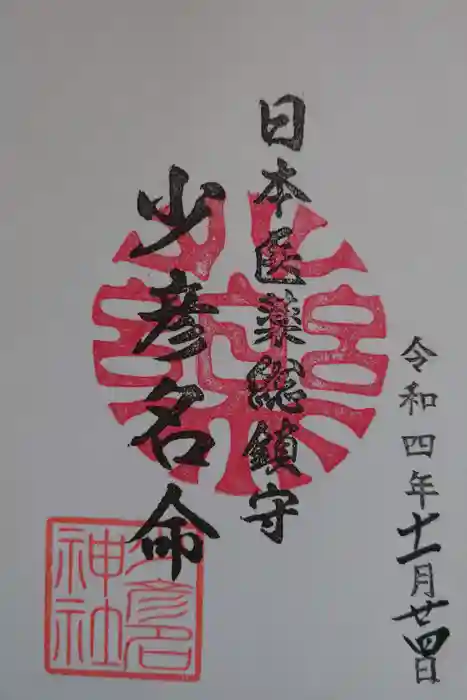 令和四年十一月廿四日
日本医薬総鎮守
少彦名命
少彦名
神社